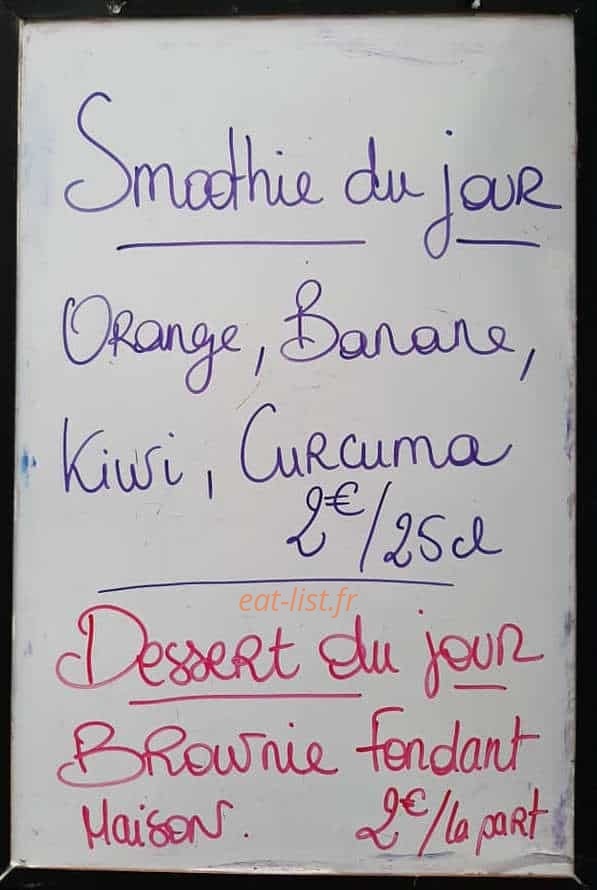 Smoothie du jour
Orange, Banane,
Kiwi, Curcuma
2€/25cl
eat-list.fr
Dessert du jour
Brownie fondant
Maison. 2€/la part